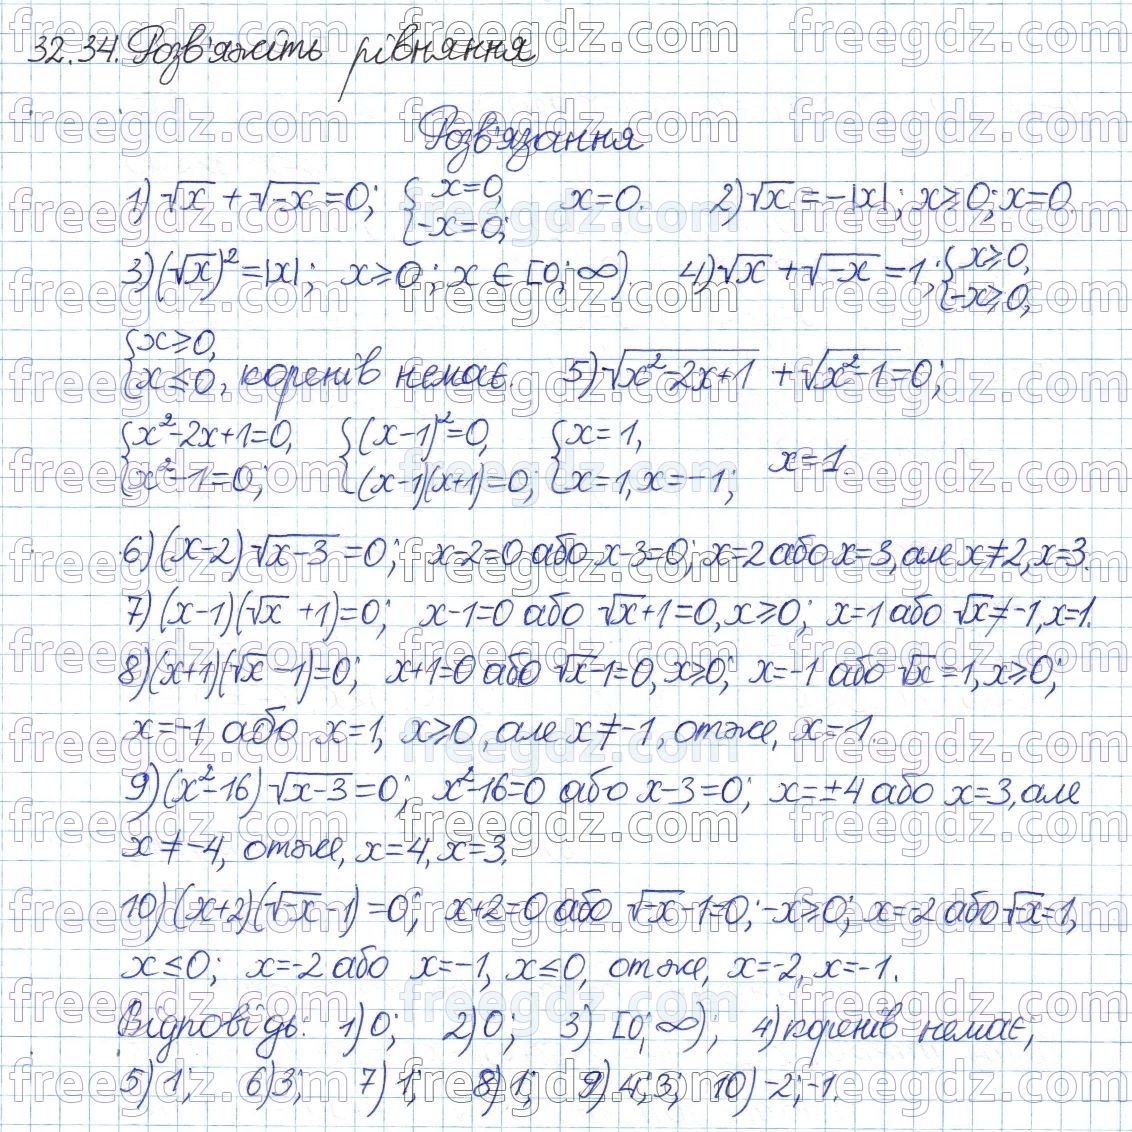 32.34. Розв'яжіть рівняння
Розв'язання
1) √x + √-x = 0; { x=0, -x=0; x=0. 2) √x = -|x|; x≥0; x=0.
3) (√x)² = |x|; x≥0; x∈[0;∞). 4) √x + √-x = 1; { x≥0, -x≥0;
{ x≥0, x≤0, коренів немає. 5) √x²-2x+1 + √x²-1 = 0;
{ x²-2x+1=0, x²-1=0; { (x-1)²=0, (x-1)(x+1)=0; { x=1, x=1, x=-1; x=1.
6) (x-2)√x-3 = 0; x-2=0 або x-3=0; x=2 або x=3, але x≠2, x=3.
7) (x-1)(√x +1)=0; x-1=0 або √x+1=0, x≥0; x=1 або √x≠-1, x=1.
8) (x+1)(√x -1)=0; x+1=0 або √x-1=0, x≥0; x=-1 або √x=1, x≥0;
x=-1 або x=1, x≥0, але x≠-1, отже, x=1.
9) (x²-16)√x-3=0; x²-16=0 або x-3=0; x=±4 або x=3, але
x≠-4, отже, x=4, x=3.
10) (x+2)(√-x -1)=0; x+2=0 або √-x-1=0; -x≥0; x=-2 або √-x=1,
x≤0; x=-2 або x=-1, x≤0, отже, x=-2, x=-1.
Відповідь: 1) 0; 2) 0; 3) [0;∞); 4) коренів немає;
5) 1; 6) 3; 7) 1; 8) 1; 9) 4; 3; 10) -2; -1.